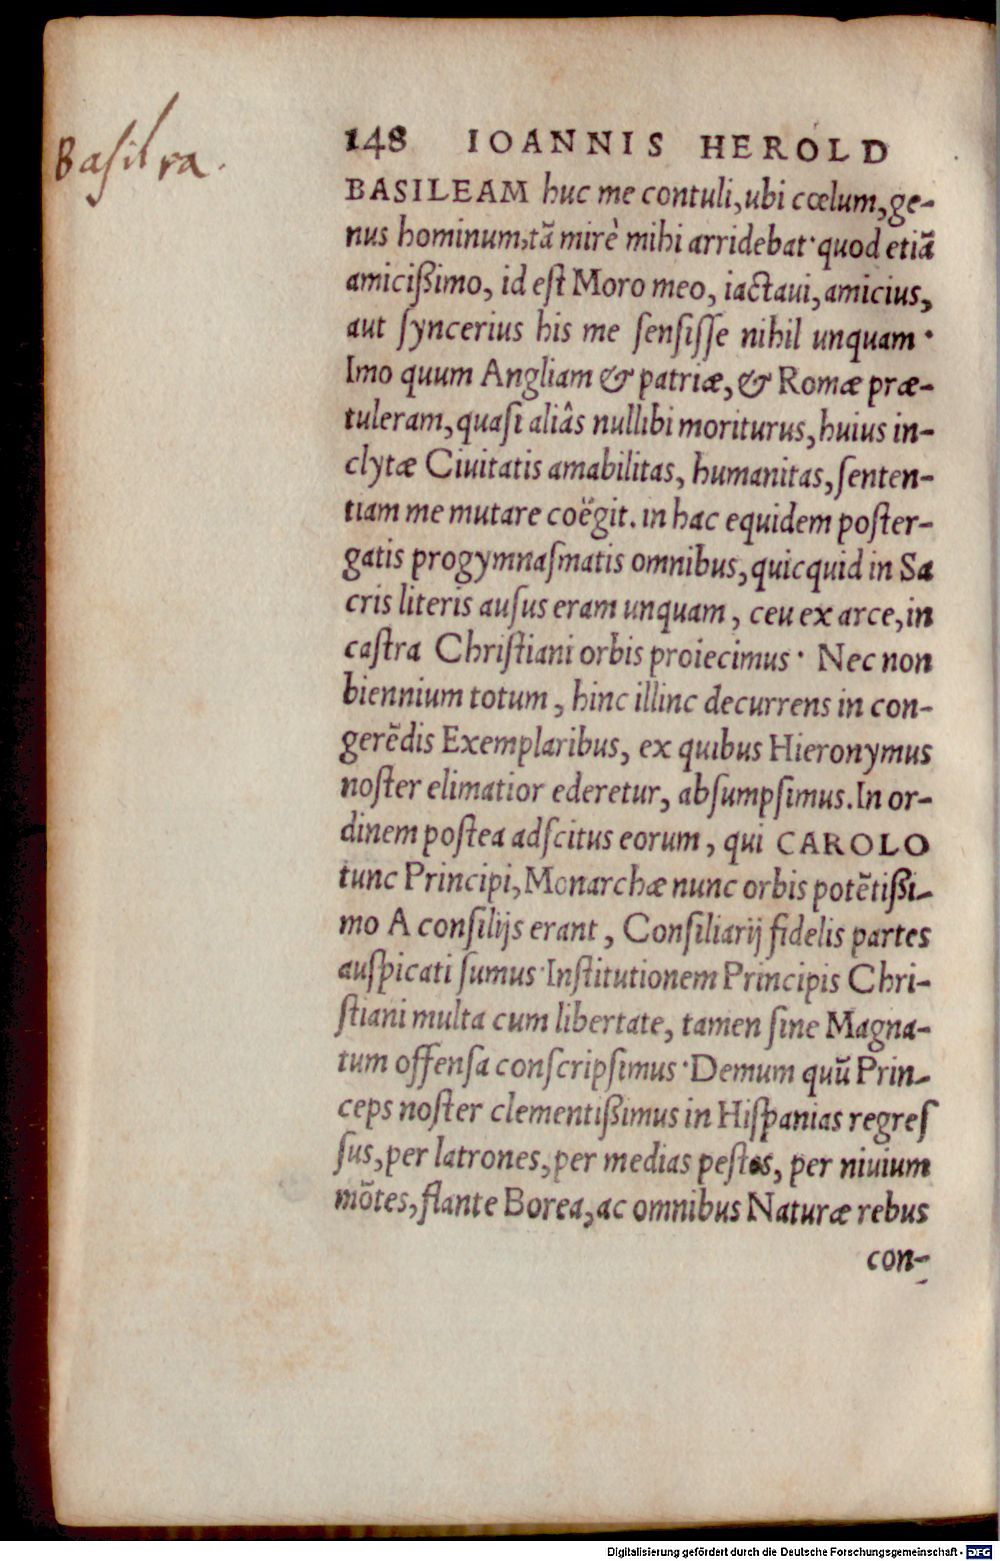 Basilea.
148 IOANNIS HEROLD
BASILEAM huc me contuli, ubi cœlum, ge-
nus hominum, tā mirè mihi arridebat· quod etiā
amicißimo, id eſt Moro meo, iactaui, amicius,
aut ſyncerius his me ſenſiſſe nihil unquam·
Imo quum Angliam & patriæ, & Romæ præ-
tuleram, quaſi aliâs nullibi moriturus, huius in-
clytæ Ciuitatis amabilitas, humanitas, ſenten-
tiam me mutare coëgit. in hac equidem poſter-
gatis progymnaſmatis omnibus, quicquid in Sa
cris literis auſus eram unquam, ceu ex arce, in
caſtra Chriſtiani orbis proiecimus· Nec non
biennium totum, hinc illinc decurrens in con-
gerēdis Exemplaribus, ex quibus Hieronymus
noſter elimatior ederetur, abſumpſimus. In or-
dinem poſtea adſcitus eorum, qui CAROLO
tunc Principi, Monarchæ nunc orbis potētißi-
mo A conſilijs erant, Conſiliarij fidelis partes
auſpicati ſumus· Inſtitutionem Principis Chri-
ſtiani multa cum libertate, tamen ſine Magna-
tum offenſa conſcripſimus· Demum quū Prin-
ceps noſter clementißimus in Hiſpanias regreſ
ſus, per latrones, per medias peſtes, per niuium
mōtes, flante Borea, ac omnibus Naturæ rebus
con-
Digitalisierung gefördert durch die Deutsche Forschungsgemeinschaft - DFG